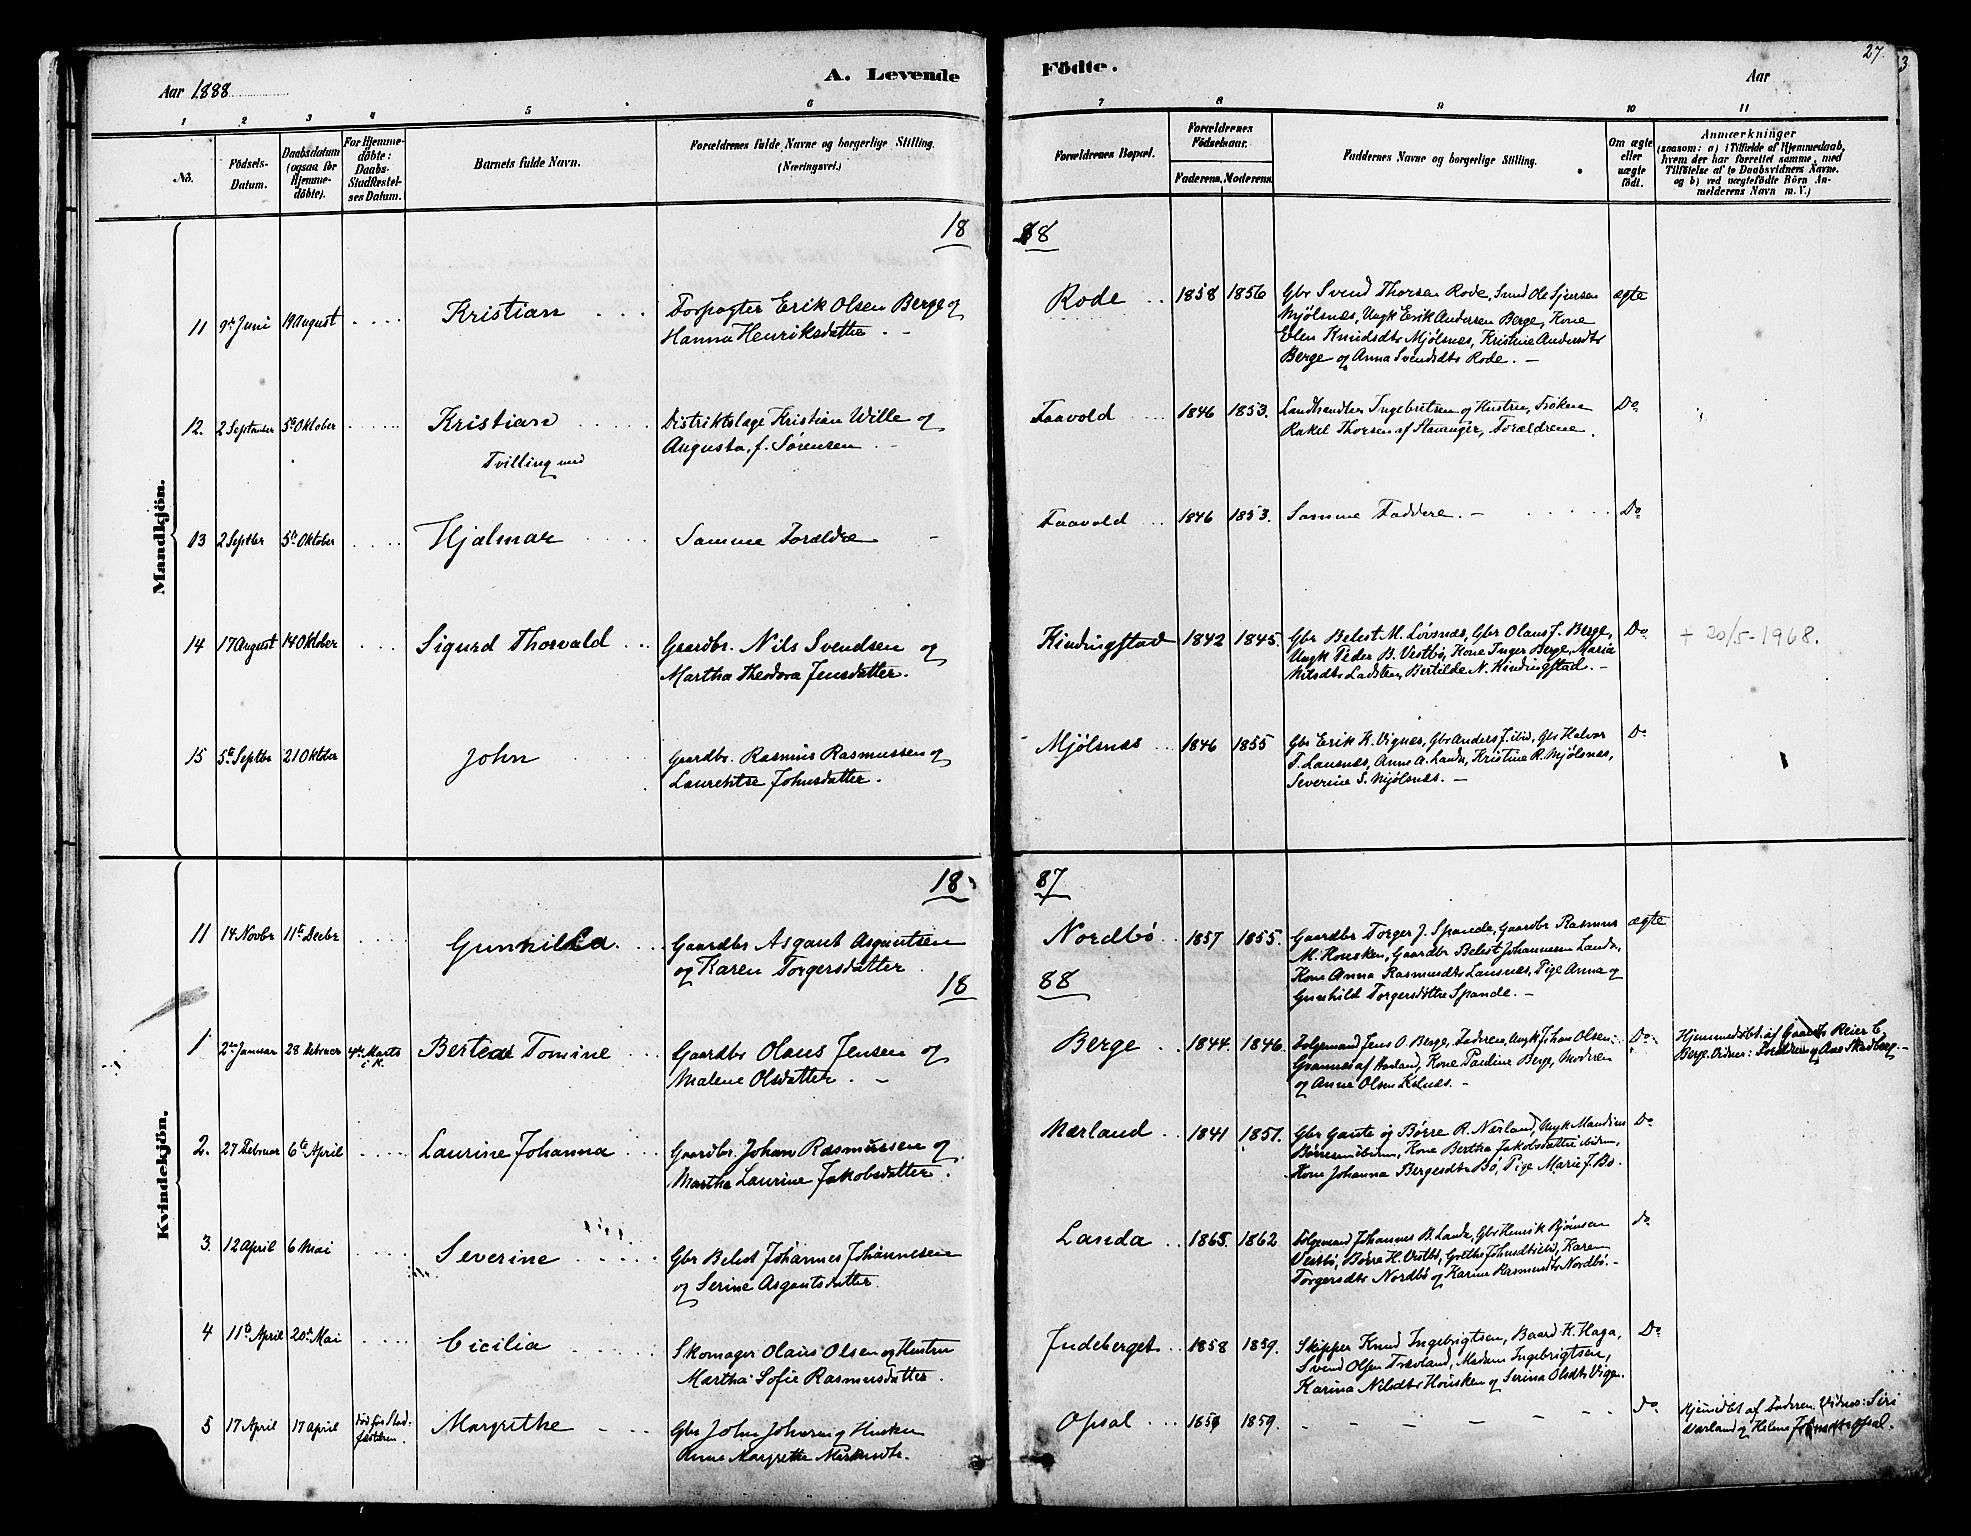 27.
3
Aar 1888
A. Levende
Födte.
Aar
1 2 3 4 5 6 7 8 9 10 11
No.
Födsels-
Datum.
Daabsdatum
(ogsaa for
Hjemme-
döbte).
For Hjemme-
döbte:
Daabs-
Stadfæstel-
ses Datum.
Barnets fulde Navn.
Forældrenes fulde Navne og borgerlige Stilling.
(Næringsvei.)
Forældrenes Bopæl.
Forældrenes
Födselsaar.
Faderens. Moderens.
Faddernes Navne og borgerlige Stilling.
Om ægte
eller
uægte
födt.
Anmærkninger
(saasom: a) i Tilfælde af Hjemmedaab,
hvem der har forrettet samme, med
Tilföielse af to Daabsvidners Navne.
og b) ved uægtefödte Börn An-
melderens Navn m. V.)
Mandkjön.
18 88
11 9de Juni 19 August Kristian Forpagter Erik Olsen Berge og
Hanna Henriksdatter
Rode 1858 1856 Gbr Svend Thorsen Rode, Svend Ole Sjursen
Mjølsnæs, Ungk Erik Andersen Berge, Kone
Elen Knudsdtr Mjølsnæs, Kristine Andersdtr
Berge og Anna Svendsdtr Rode.
ægte
12. 2 September 5te Oktober Kristian
Tvilling med
Distriktslæge Kristian Wille og
Augusta, f. Sørensen
Faavold 1846 1853. Landhandler Ingebretsen og Hustru, Frøken
Rakel Thorsen af Stavanger, Forældrene.
Do
13 2 Septber 5te Oktober Hjalmar Samme Forældre
Faavold 1846 1853. Samme Faddere. Do
14 17 August 14 Oktober Sigurd Thorvald Gaardbr. Nils Svendsen og
Martha Theodora Jensdatter.
Kindingstad 1842 1845. Gbr Belest M. Lovsnæs, Gbr Olaus J. Berge,
Ungk Peder B. Vestbø, Kone Inger Berge, Maria
Nilsdtr Ladsten, Bertilde N. Kindingstad.
Do + 20/5-1968.
15 5te Septbr 21 Oktober John Gaardbr. Rasmus Rasmussen og
Laurentse Johnsdatter.
Mjølsnæs 1846 1855 Gbr Erik K. Vignæs, Gbr Anders J. ibid, Gbr Halvor
T. Lausnæs, Anne A. Landa, Kristine R. Mjølsnæs,
Severine S. Mjølsnæs.
Do
Kvindekjön.
18 87
11 14 Novbr 11te Decbr Gunhilda. Gaardbr Asgaut Asgautsen
og Karen Torgersdatter
Nordbø 1857 1855. Gaardbr Torger J. Spande, Gaardbr Rasmus
M. Housken, Gaardbr Belest Johannesen Landa,
Kone Anna Rasmusdtr Lausnæs, Pige Anna og
Gunhild Torgersdøttre Spande.
ægte
18 88
1 2den Januar 28 Februar 4de Marts
i K.
Tomine Gaardbr Olaus Jensen og
Malene Olsdatter.
Berge 1844. 1846. Folgemand Jens O. Berge, Faderen, Ungk Johan Olsen
Grannes af Haaland, Kone Pauline Berge, Moderen
og Anne Olsen
Do Hjemmedøbt af Gaardbr Reier C.
Berge. Vidner: Forældrene og Ane Skadberg.
2. 27 Februar 6te April Laurine Johanna Gaardbr. Johan Rasmussen og
Martha Laurine Jakobsdatter.
Nærland 1841 1851. Gbr Gaute og Børre R. Nærland, Ungk Mandius
Børresen ibidem, Kone Bertha Jakobsdatter ibidm,
Kone Johanna Bergesdtr Bø, Pige Marie J. Bø.
Do
3. 12 April 6 Mai Severine Gbr Belest Johannes Johannesen
og Serine Asgautsdatter.
Landa 1865. 1862 Folgemand Johannes B. Landa, Gbr Henrik Bjørnsen
Vestbø, Børre H. Vestbø, Grethe Johnsdtr ibid, Karen
Torgersdtr Nordbø og Karine Rasmusdtr Nordbø.
do
4 11te April 20de Mai Cicilia Skomager Olaus Olsen og Hustru
Martha Sofie Rasmusdatter.
Judeberget 1858 1859. Skipper Knud Ingebrigtsen, Baard K. Haga,
Svend Olsen Trævland, Madam Ingebrigtsen,
Karina Nilsdtr Housken og Serina Olsdtr Vige.
Do
5 17 April 17 April død før Stad-
festelsen.
Margrethe Gbr John Johnsen og Hustru
Anne Margrethe
Opsal 1859. do Hjemdøbt af Faderen. Vidner: Siri
Værland og Helene Opsal.